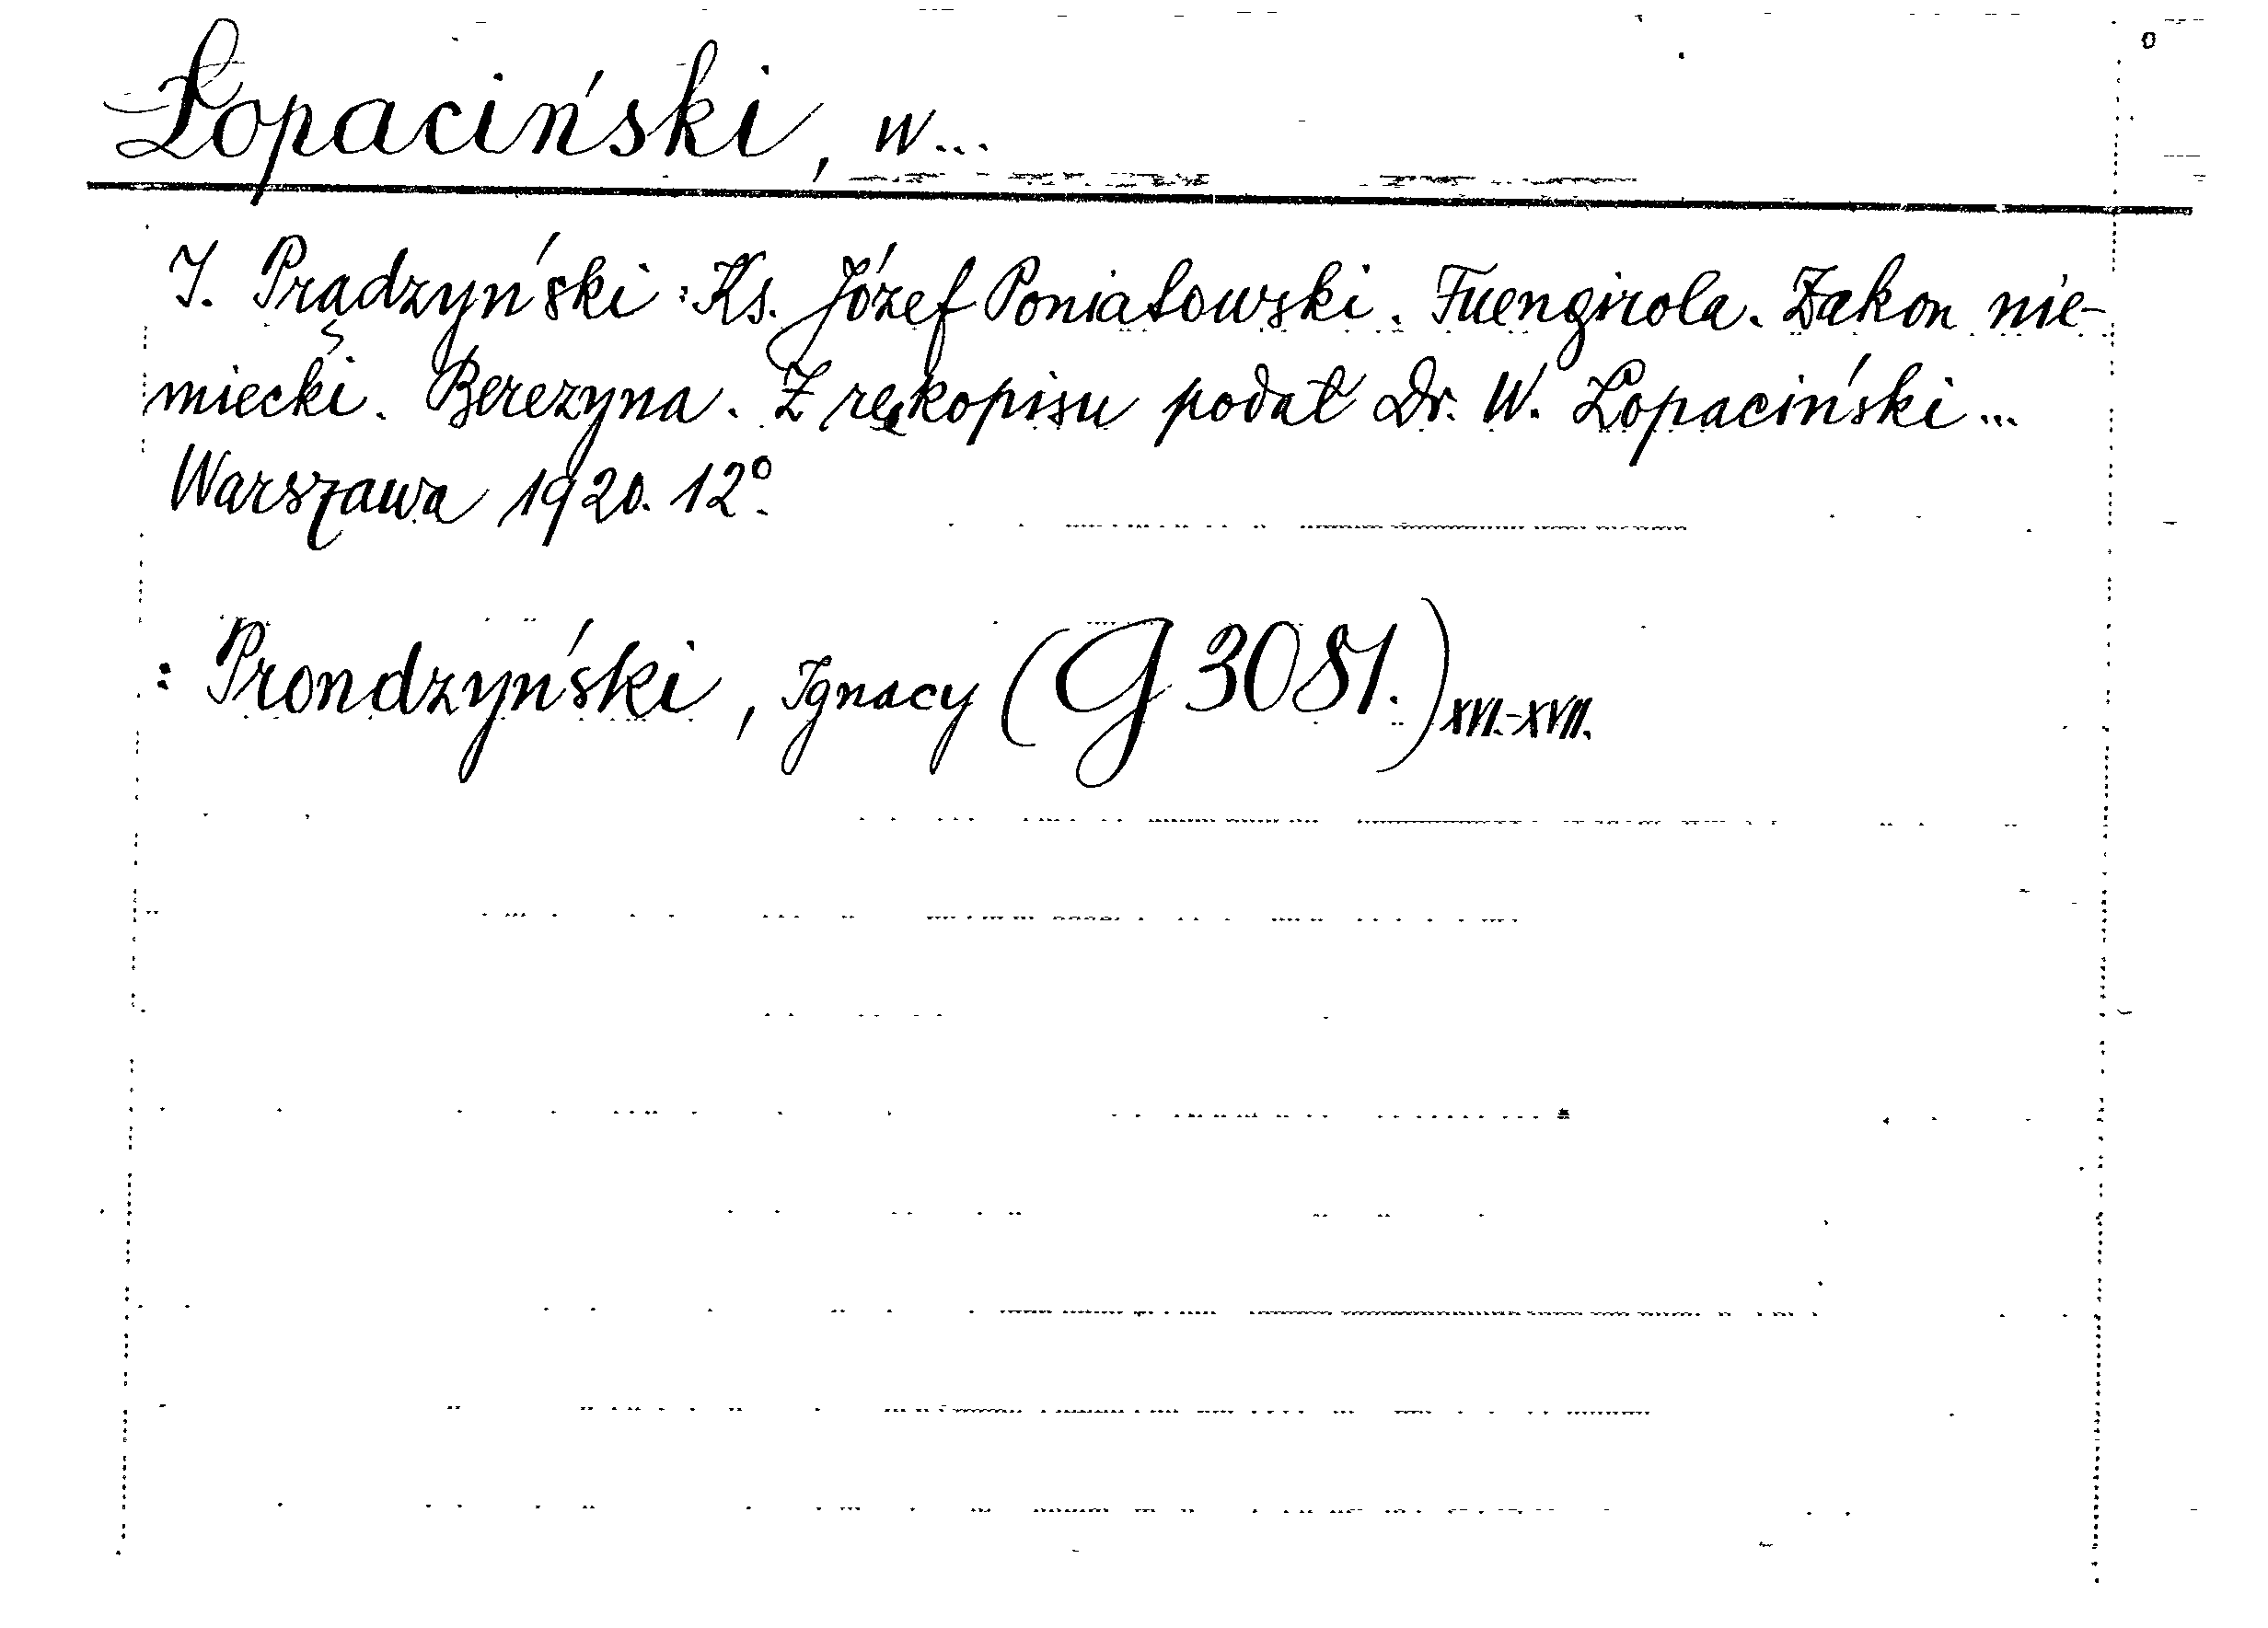 Łopaciński, W...
I. Prądzyński: Ks. Józef Poniatowski. Fuengirola. Zakon nie-
miecki. Berezyna. Z rękopisu podał Dr. W. Łopaciński...
Warszawa 1920. 12º.
: Prondzyński, Ignacy (G 3051.) XVI.-XVII.